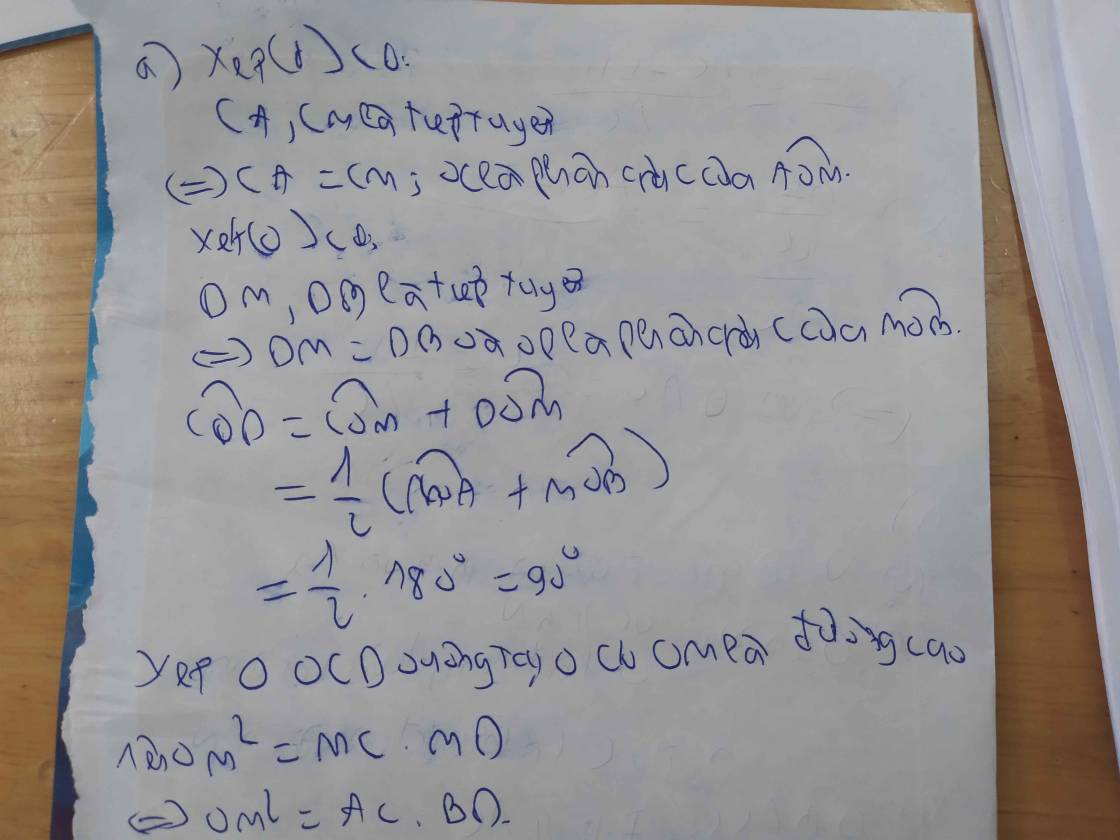 a) Xét (O) có:
CA, CM là tiếp tuyến
(=> CA = CM; OC là phân giác của AOM.
Xét (O) có:
DM, DB là tiếp tuyến
<=> DM = DB và OD là phân giác của MOB.
COD = COM + DOM
= 1/2 (MOA + MOB)
= 1/2 . 180° = 90°
Xét △ OCD vuông tại O có OM là đường cao
nên OM² = MC . MD
<=> OM² = AC . BD.